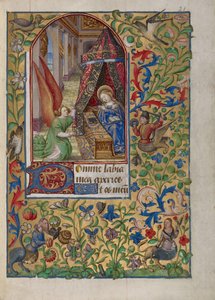 Domine labia
mea aperies
et os meū